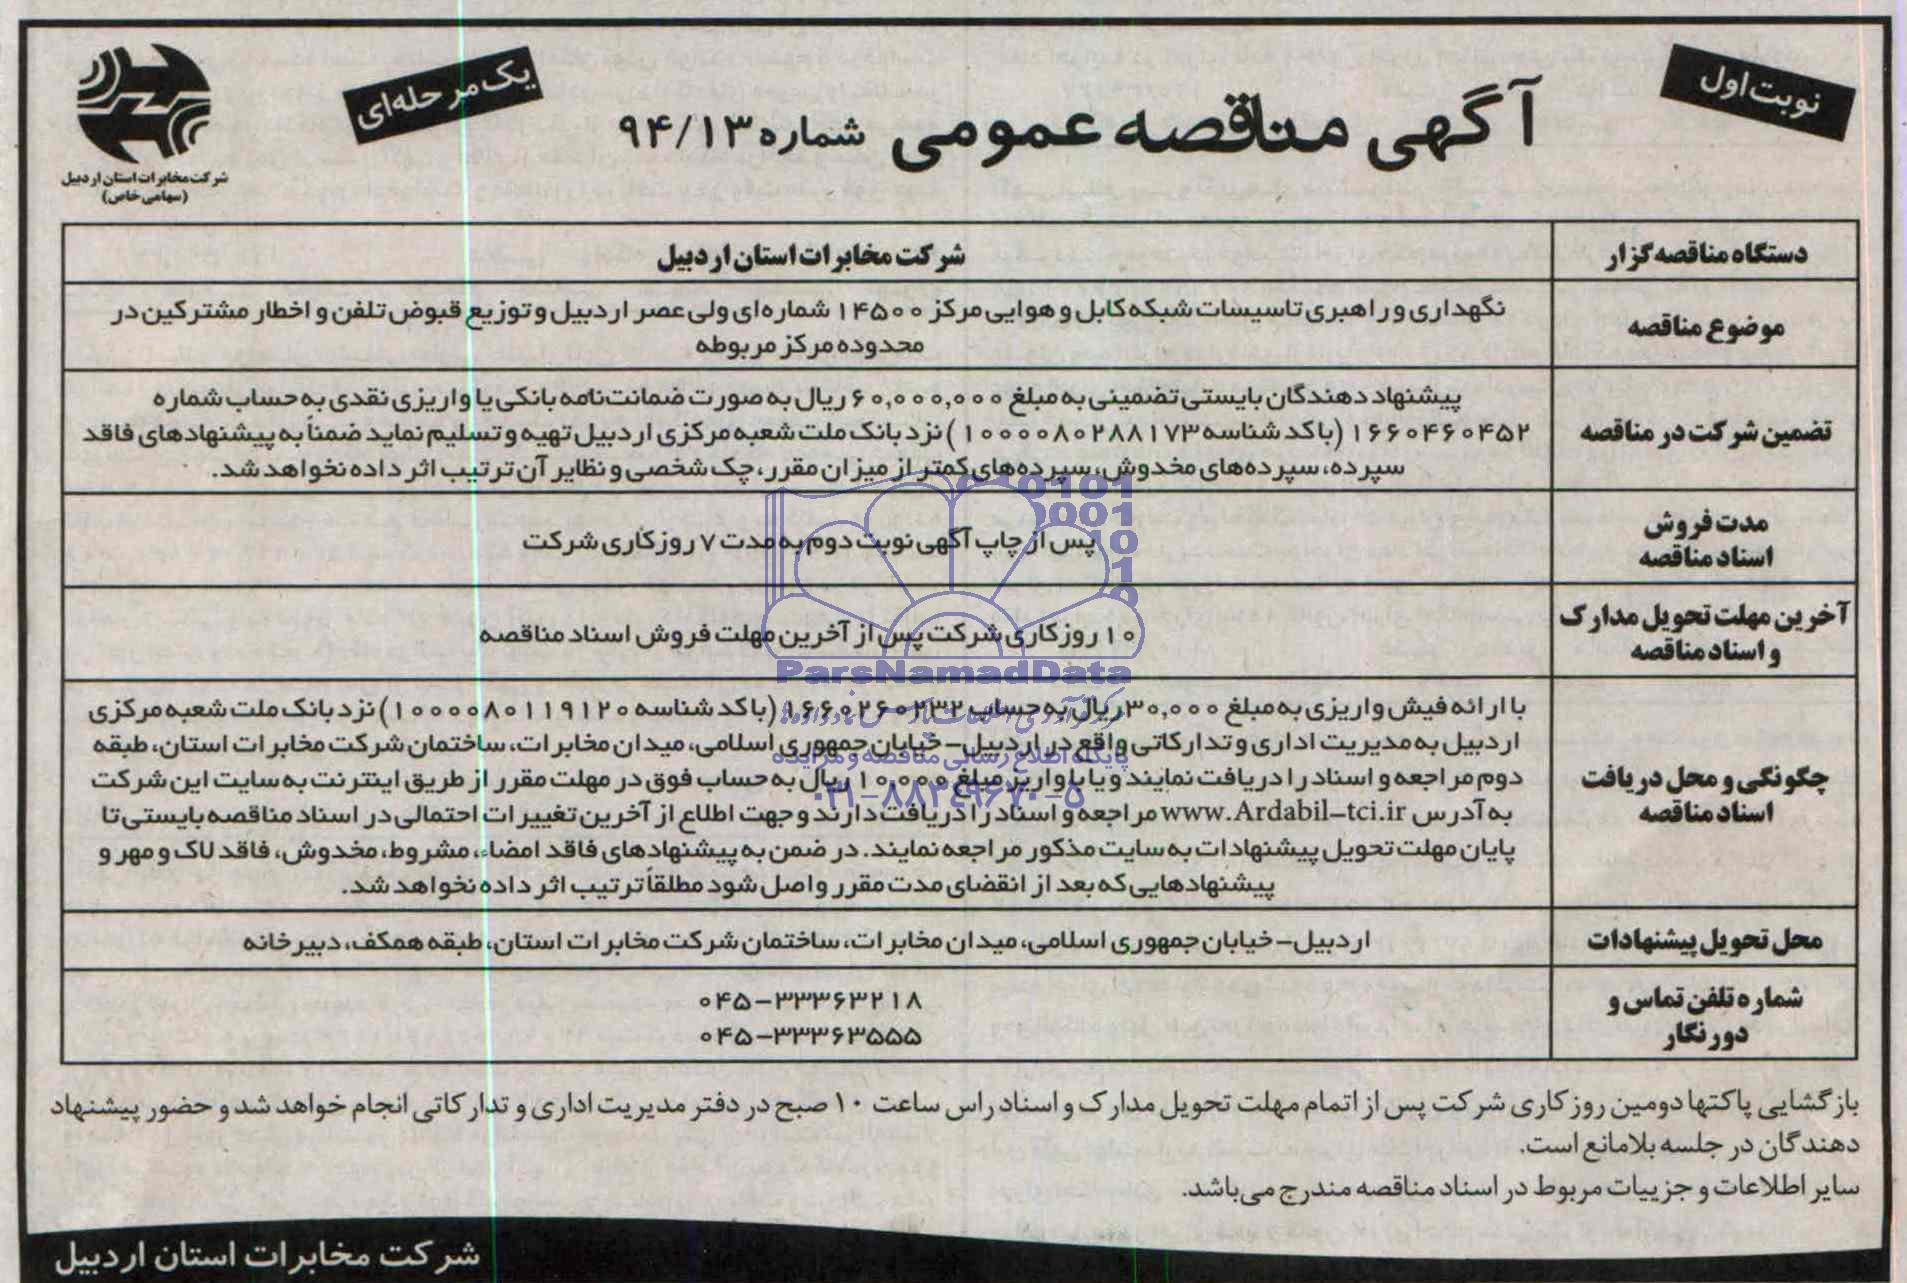 نوبت اول
آگهی مناقصه عمومی شماره ۹۴/۱۳
یک مرحله‌ای
شرکت مخابرات استان اردبیل
(سهامی خاص)
دستگاه مناقصه‌گزار
شرکت مخابرات استان اردبیل
موضوع مناقصه
نگهداری و راهبری تاسیسات شبکه کابل و هوایی مرکز ۱۴۵۰۰ شماره‌ای ولی عصر اردبیل و توزیع قبوض تلفن و اخطار مشترکین در
محدوده مرکز مربوطه
تضمین شرکت در مناقصه
پیشنهاد دهندگان بایستی تضمینی به مبلغ ۶۰,۰۰۰,۰۰۰ ریال به صورت ضمانت‌نامه بانکی یا واریزی نقدی به حساب شماره
۱۶۶۰۴۶۰۴۵۲ (با کد شناسه ۱۰۰۰۰۸۰۲۸۸۱۷۳) نزد بانک ملت شعبه مرکزی اردبیل تهیه و تسلیم نماید ضمناً به پیشنهادهای فاقد
سپرده، سپرده‌های مخدوش، سپرده‌های کمتر از میزان مقرر، چک شخصی و نظایر آن ترتیب اثر داده نخواهد شد.
مدت فروش
اسناد مناقصه
پس از چاپ آگهی نوبت دوم به مدت ۷ روز کاری شرکت
آخرین مهلت تحویل مدارک
و اسناد مناقصه
۱۰ روز کاری شرکت پس از آخرین مهلت فروش اسناد مناقصه
چگونگی و محل دریافت
اسناد مناقصه
با ارائه فیش واریزی به مبلغ ۳۰,۰۰۰ ریال به حساب ۱۶۶۰۲۶۰۲۳۲ (با کد شناسه ۱۰۰۰۰۸۰۱۱۹۱۲۰) نزد بانک ملت شعبه مرکزی
اردبیل به مدیریت اداری و تدارکاتی واقع در اردبیل – خیابان جمهوری اسلامی، میدان مخابرات، ساختمان شرکت مخابرات استان، طبقه
دوم مراجعه و اسناد را دریافت نمایند و یا با واریز مبلغ ۱۰,۰۰۰ ریال به حساب فوق در مهلت مقرر از طریق اینترنت به سایت این شرکت
به آدرس www.Ardabil-tci.ir مراجعه و اسناد را دریافت دارند و جهت اطلاع از آخرین تغییرات احتمالی در اسناد مناقصه بایستی تا
پایان مهلت تحویل پیشنهادات به سایت مذکور مراجعه نمایند. در ضمن به پیشنهادهای فاقد امضاء، مشروط، مخدوش، فاقد لاک و مهر و
پیشنهادهایی که بعد از انقضای مدت مقرر واصل شود مطلقاً ترتیب اثر داده نخواهد شد.
محل تحویل پیشنهادات
اردبیل – خیابان جمهوری اسلامی، میدان مخابرات، ساختمان شرکت مخابرات استان، طبقه همکف، دبیرخانه
شماره تلفن تماس و
دورنگار
۰۴۵-۳۳۳۶۳۲۱۸
۰۴۵-۳۳۳۶۳۵۵۵
بازگشایی پاکتها دومین روز کاری شرکت پس از اتمام مهلت تحویل مدارک و اسناد راس ساعت ۱۰ صبح در دفتر مدیریت اداری و تدارکاتی انجام خواهد شد و حضور پیشنهاد
دهندگان در جلسه بلامانع است.
سایر اطلاعات و جزییات مربوط در اسناد مناقصه مندرج می‌باشد.
شرکت مخابرات استان اردبیل
ParsNamadData
پایگاه اطلاع رسانی مناقصه و مزایده
۰۲۱-۸۸۳۴۹۶۷۰-۵